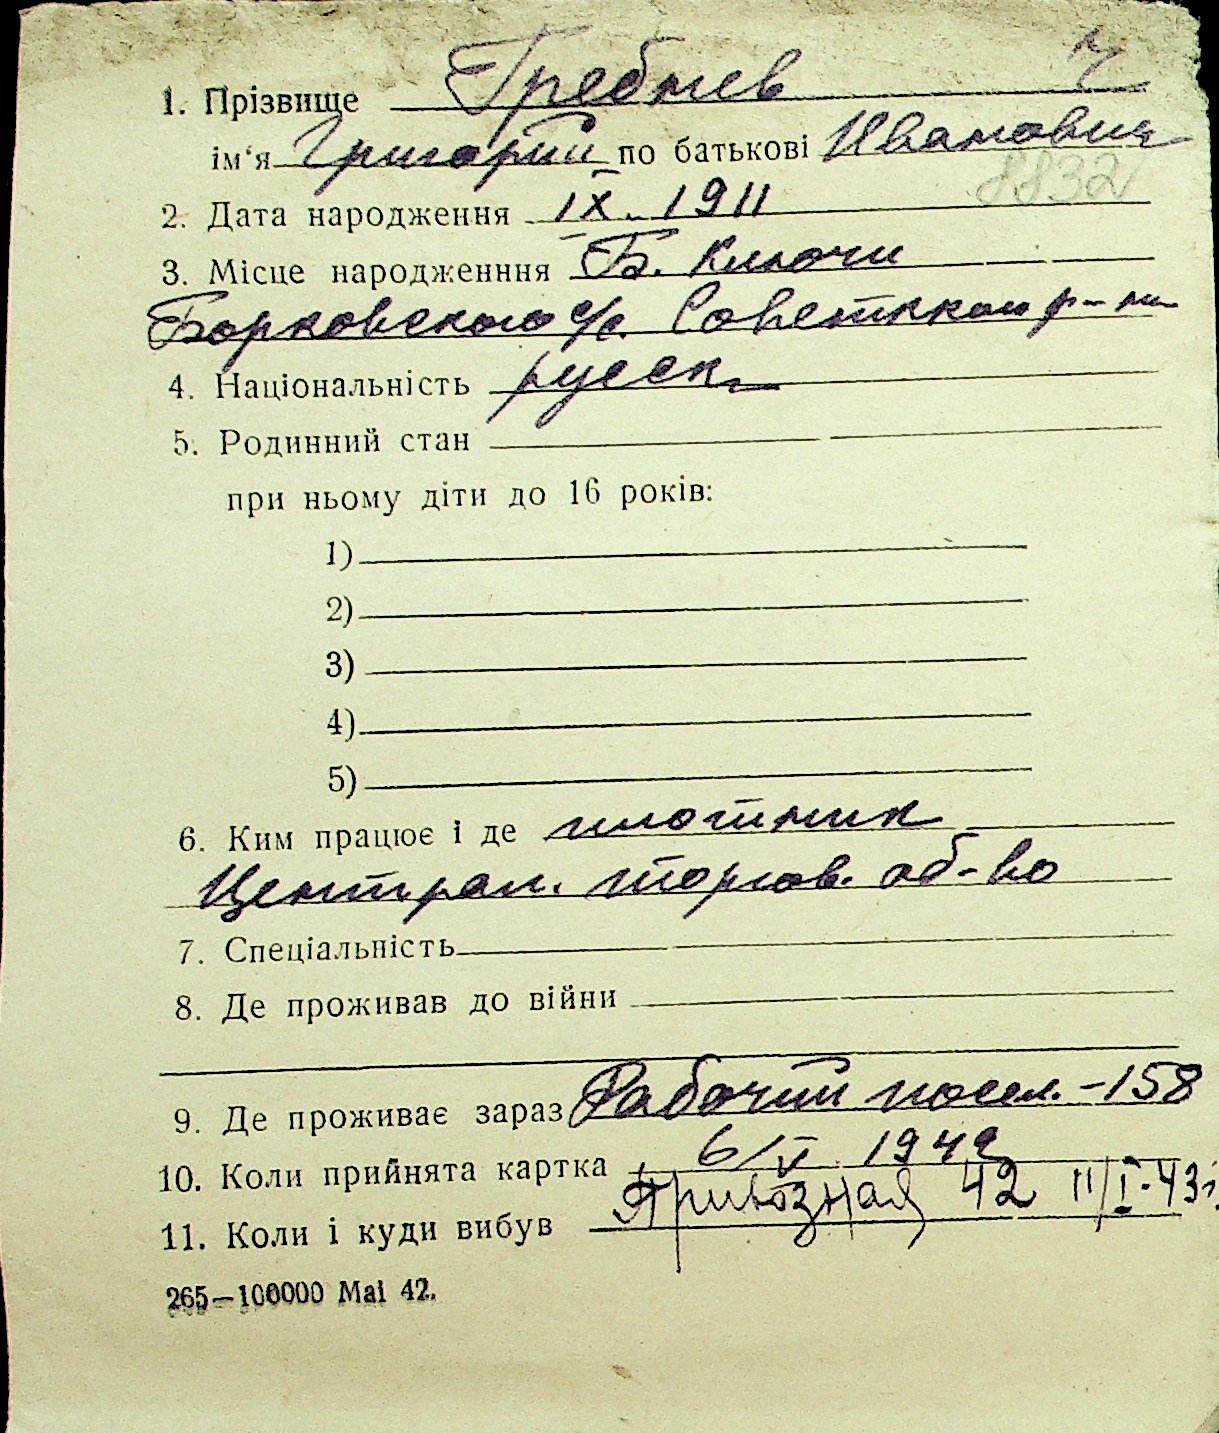 1. Прізвище Гребнев Ч
ім‘я Григорий по батькові Иванович
8832
2. Дата народження IX. 1911
3. Місце народженння Б. Ключи
Борковского с/с. Советским р-на
4. Національність русск.
5. Родинний стан
при ньому діти до 16 років:
1)
2)
3)
4)
5)
6. Ким працює і де плотник
Централ. торгов. об-во
7. Спеціальність
8. Де проживав до війни
9. Де проживає зараз Рабочий посел. -158
10. Коли прийнята картка 6/V 1942
11. Коли і куди вибув Привозная 42 11/I-43г.
265—100000 Mai 42.